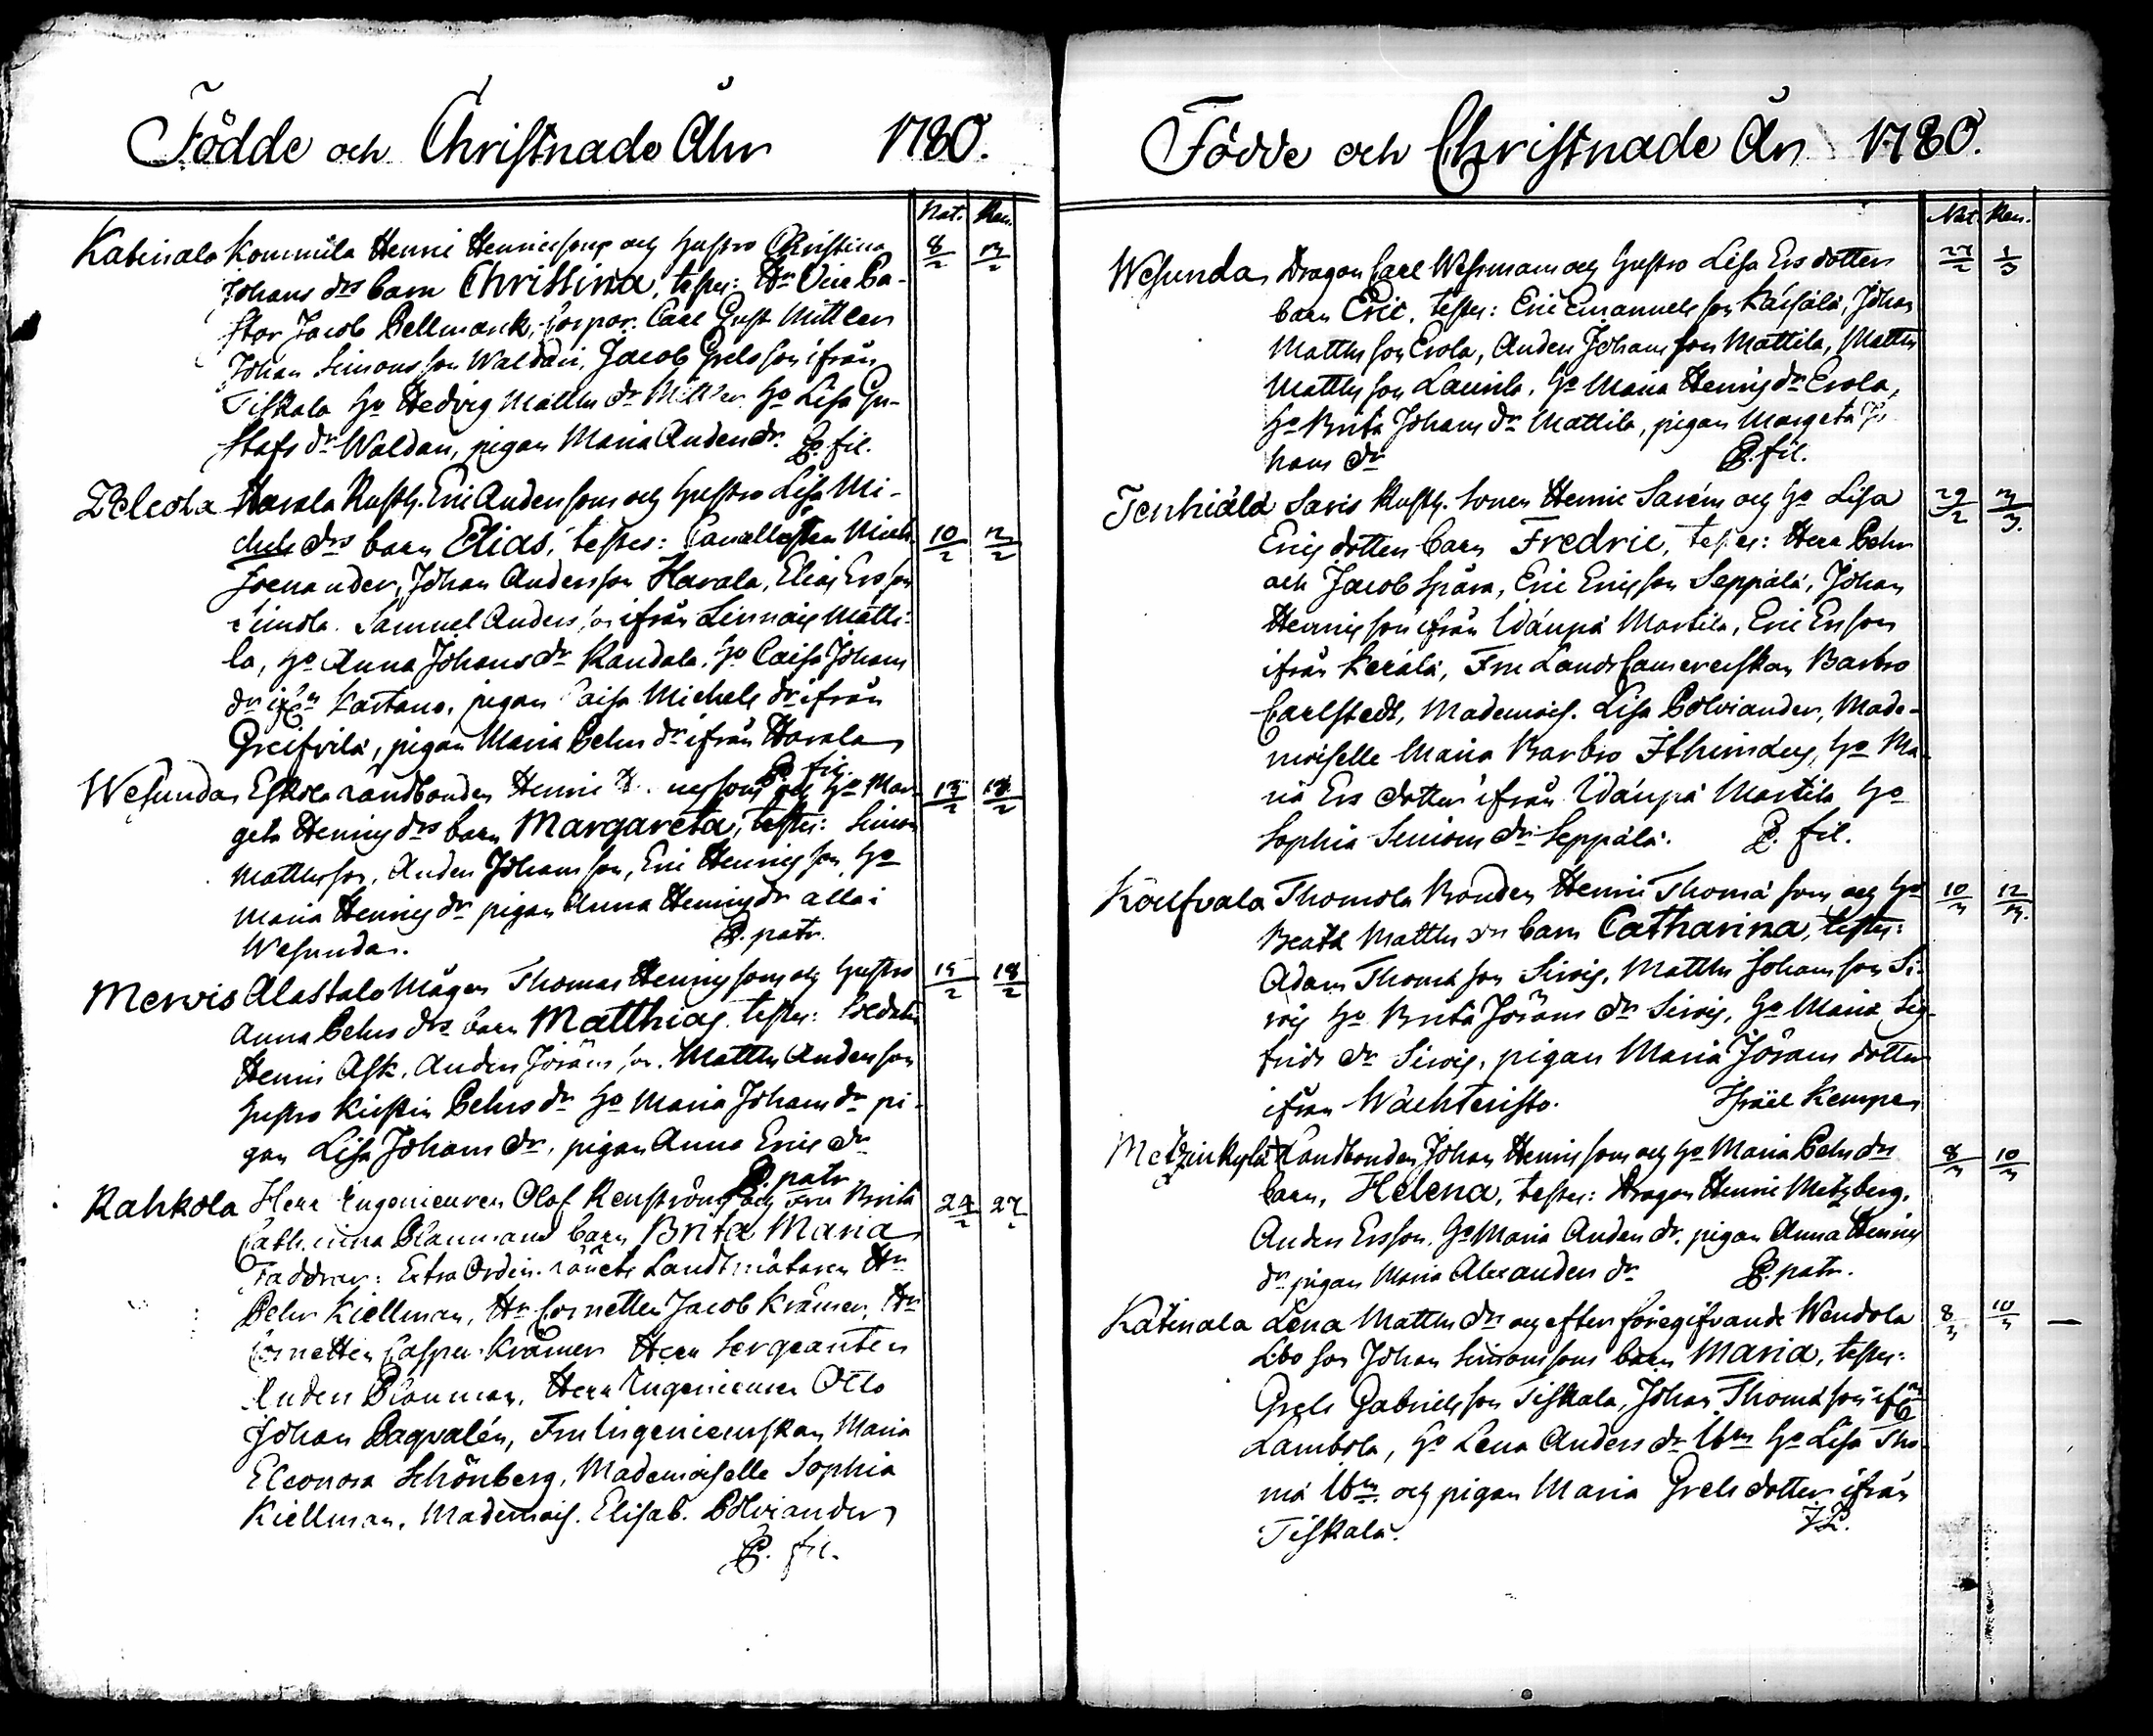 Födde och Christnade Åhr 1780.
Nat. Ren.
Katinala Kommila Henric Henricssons och hustro Christina 8/2
Johans drs barn Christina, testes: Hr Vice Pa-
stor Jacob Pellmarck, Corpor. Carl Gust Mittler
Johan Simonsson Waldau, Jacob Grelsson ifrån
Tiskala ho Hedvig Matths dr Mittler ho Lisa Gu-
stafs dr Waldau, pigan Maria Anders dr P. fil.
Pelcola Harala Rusth. Eric Anderssons och hustro Lisa Mi-
chels drs barn Elias, testes: 10/2 12/2
Johan Andersson Harala, Elias Ersson
Simola. Samuel Andersson ifrån Linnais Matti-
la, ho Anna Johans dr Kandala, ho Caisa Johans
dr ifrn Kartano, pigan Caisa Michels dr ifrån
Greifvilä, pigan Maria Pehrs dr ifrån Harala
P. fil.
Wesunda Eskola Landbonden Henric och ho Mar-
geta Henrics drs barn Margareta, testes: Simon
Mattsson, Anders Johansson, Eric Henricsson, ho
Maria Henrics dr pigan Anna Henrics dr alla i
Wesunda. P. patr.
Mervis Alastalo Mågen Thomas Henricssons och hustro 18/2
Anna Pehrs drs barn Matthias testes: Soldaten
Henric Ask. Anders Jöransson. Matths Andersson
hustro Kirstin Pehrs dr ho Maria Johans dr pi-
gan Lisa Johans dr, pigan Anna Erics dr
P. patr
Rahkola Herr Ingenieuren Olof Renström och Fru Brita 24/2 27
Catharina Planmans barn Brita Maria
Faddrar: Extra Ordin. Landtmätaren Hr
Pehr Kiellman, Hr Cornetten Jacob Krämer, Hr
Cornetten Casper Krämer Herr Sergeanten
Anders Planman, Herr Ingenieuren Otto
Johan Pagvalén, Fru Ingenieurskan Maria
Eleonora Schönberg, Mademoiselle Sophia
Kiellman, Mademois. Elisab. Polviander
P. fil.
Födde och Christnade År 1780.
Nat. Ren.
Wesunda Dragon Carl Wessmans och hustro Lisa Ersdotters 27/2 1/3
barn Eric, testes: Eric Emanuelsson Käisälä, Johan
Matthsson Erola, Anders Johansson Mattila, Matths
Matthsson Laurila, ho Maria Henrics dr Erola,
ho Brita Johans dr Mattila, pigan Margeta Jo-
hans dr P. fil.
Tenhiälä Saris Rusth. Sonen Henric Saréns och ho Lisa 29/2
Ericsdotters barn Fredric, testes: Herr Pehr
och Jacob Spåra, Eric Ericsson Seppälä, Johan
Henricsson ifrån Idänpä Martila, Eric Ersson
ifrån Kerälä, Fru Landscamererskan Barbro
Carlstedt, Mademois. Lisa Polviander, Made-
moiselle Maria Barbro Ithimæus, ho Ma-
ria Ersdotter ifrån Idänpä Martila ho
Sophia Simons dr Seppälä. P. fil.
Thomola Bonden Henric Thomä sons och ho 10/3 12/3.
Beata Matths drs barn Catharina, testes:
Adam Thomä son Sirois, Matths Johansson Si-
rois ho Brita Jörans dr Sirois, ho Maria Sig-
frids dr Sirois, pigan Maria Jörans dotter
ifrån Wächteristo. Israël Kempe
Metzinkylä Landbonden Johan Henricssons och ho Maria Pehrs drs 8/3 10/3
barn, Helena, testes: Dragon Henric Metzberg,
Anders Ersson, ho Maria Anders dr, pigan Anna Henrics
dr pigan Maria Alexanders dr P. patr.
Katinala Lena Matths drs och efter föregifvande Wendola 8/3 10/3
Åbo son Johan Simonssons barn Maria, testes:
Grels Gabrielsson Tiskala, Johan Thomä son ifrn
Lambola, ho Lena Anders dr ibm ho Lisa Tho-
mä ibm. och pigan Maria Grelsdotter ifrån
Tiskala.